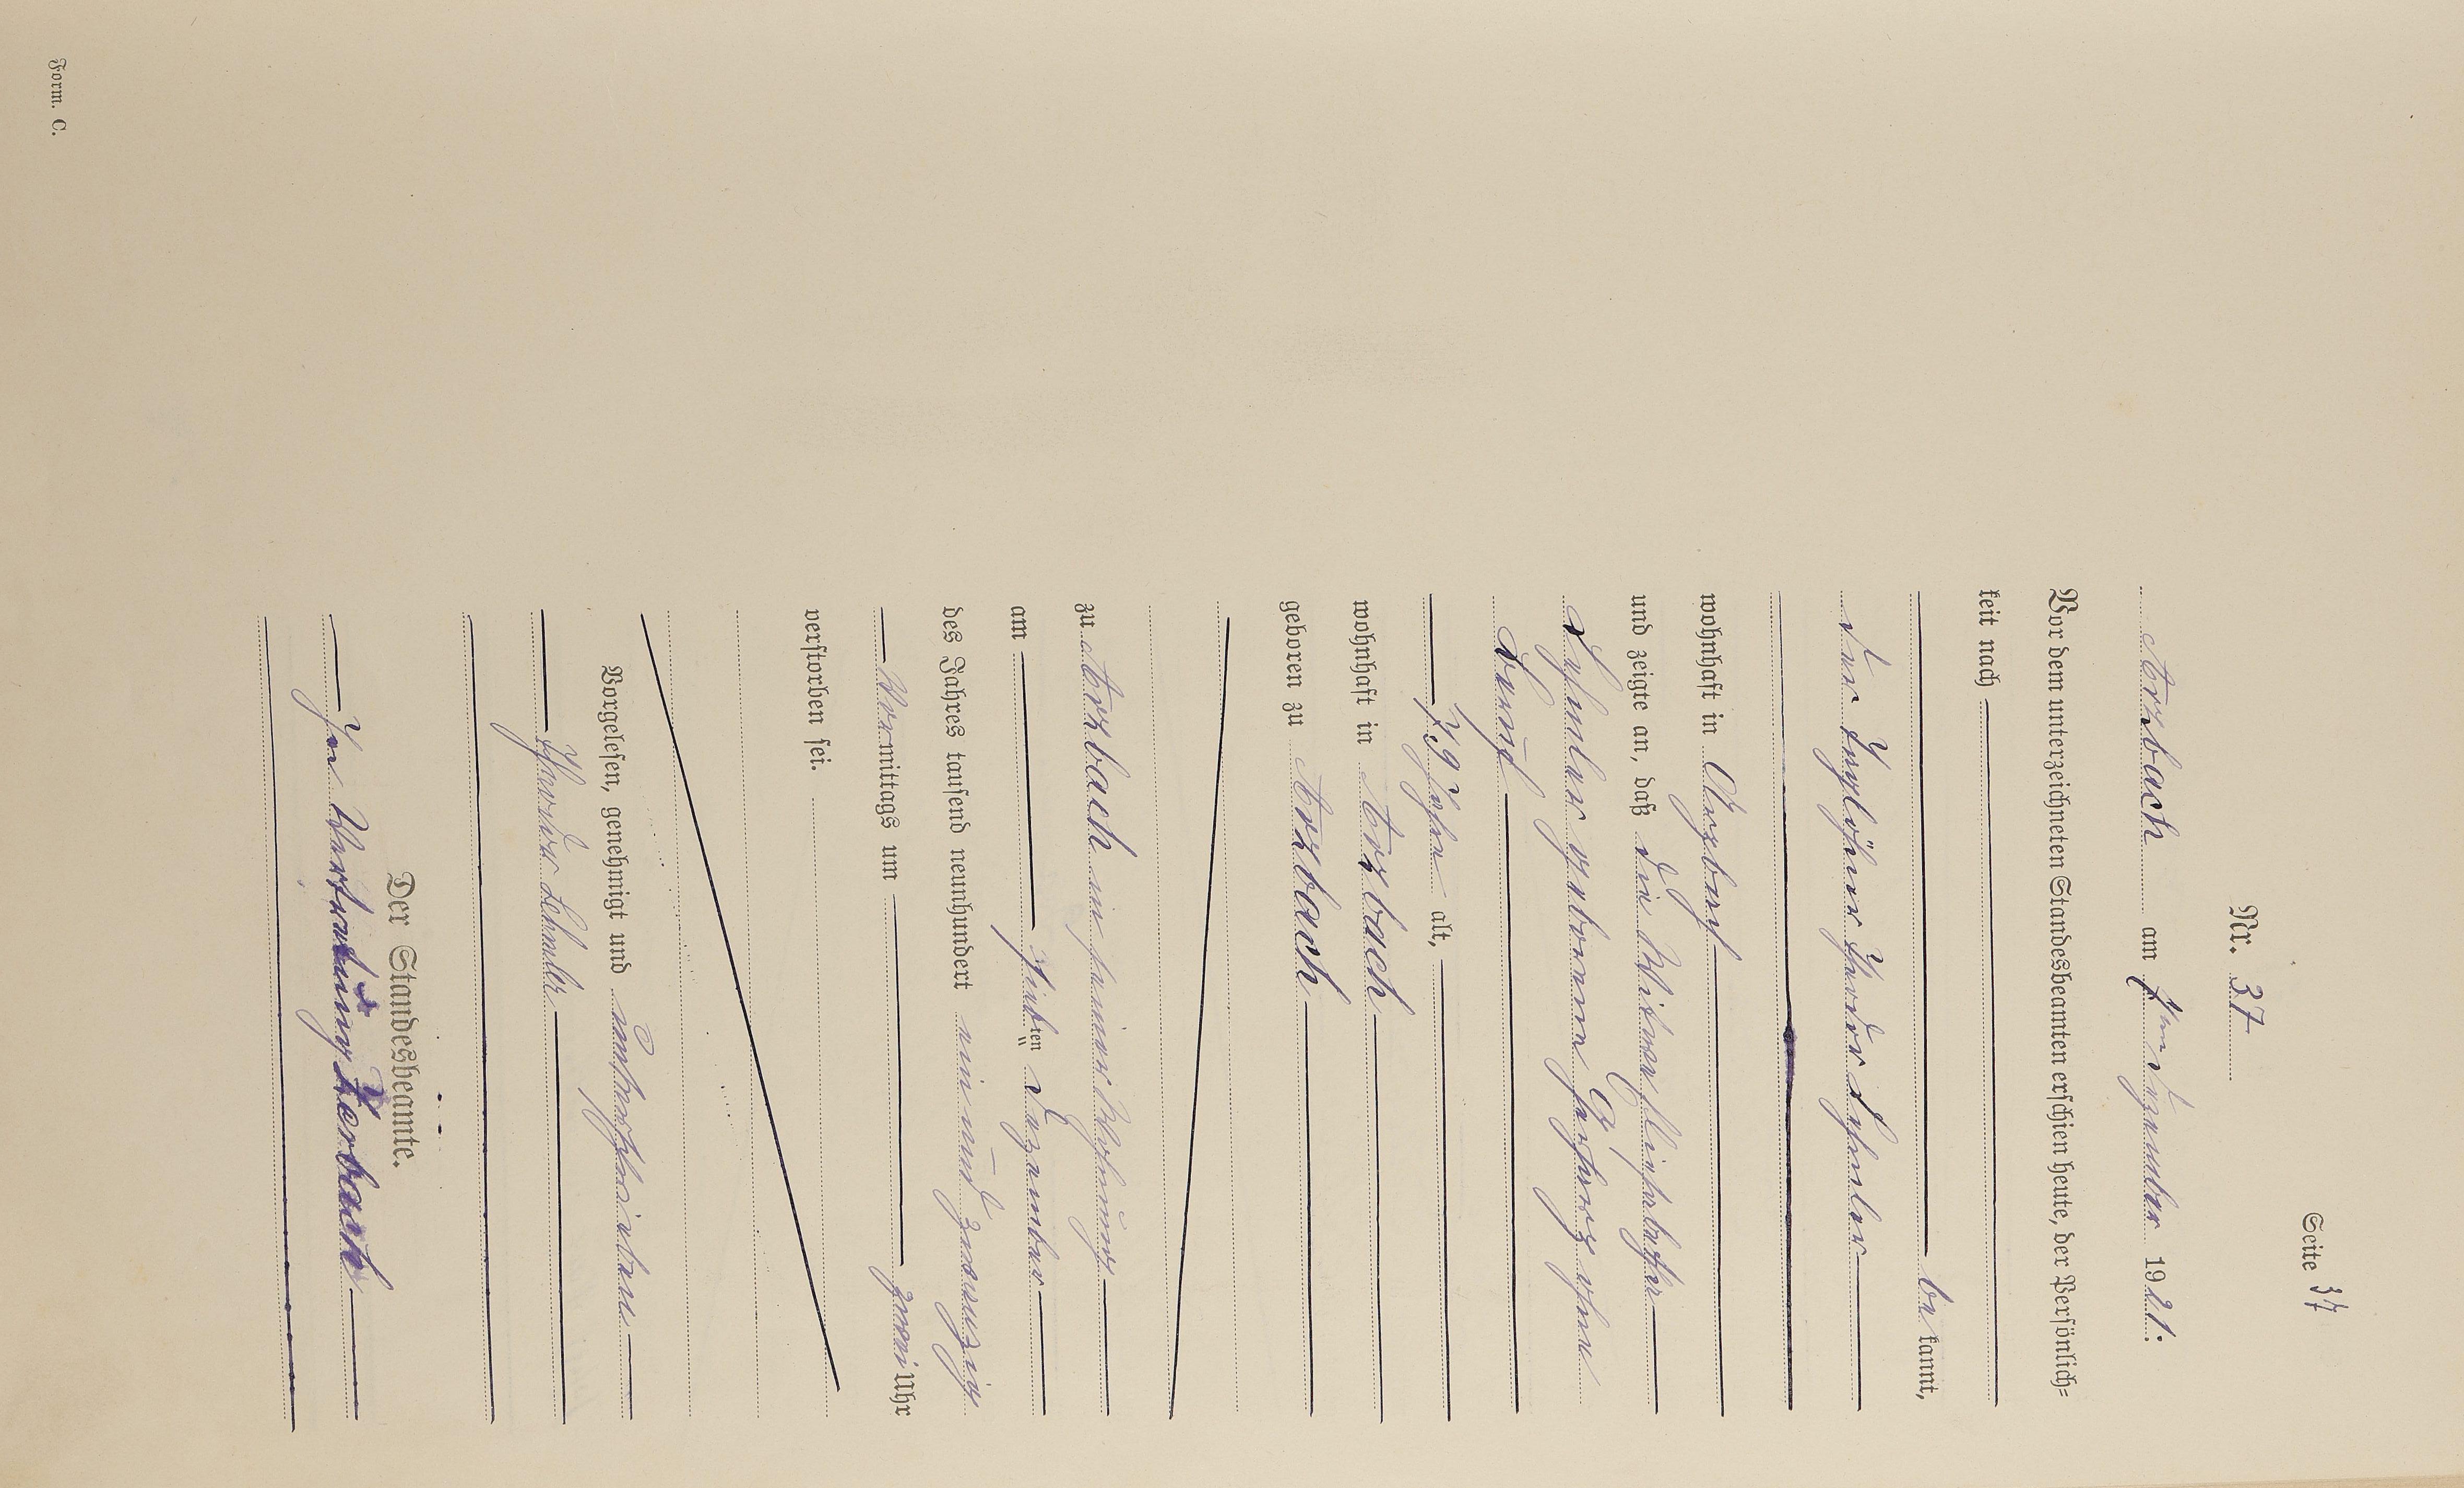 Seite 37
Nr. 37
Arzbach am 7ten Dezember 1921:
Vor dem unterzeichneten Standesbeamten erschien heute, der Persönlich=
keit nach
be kannt,
der Taglöhner Peder
wohnhaft in Arzbach
und zeigte an, daß die Witwe Elisabetha
geborenen ohne
Beruf
79 Jahre alt,
wohnhaft in Arzbach
geboren zu Arzbach
zu Arzbach in seiner Wohnung
am siebten Dezember
des Jahres tausend neunhundert ein und zwanzig
Vor mittags um zwei Uhr
verstorben sei.
Vorgelesen, genehmigt und unterschrieben
Der Standesbeamte.
In Vertretung
Form. C.